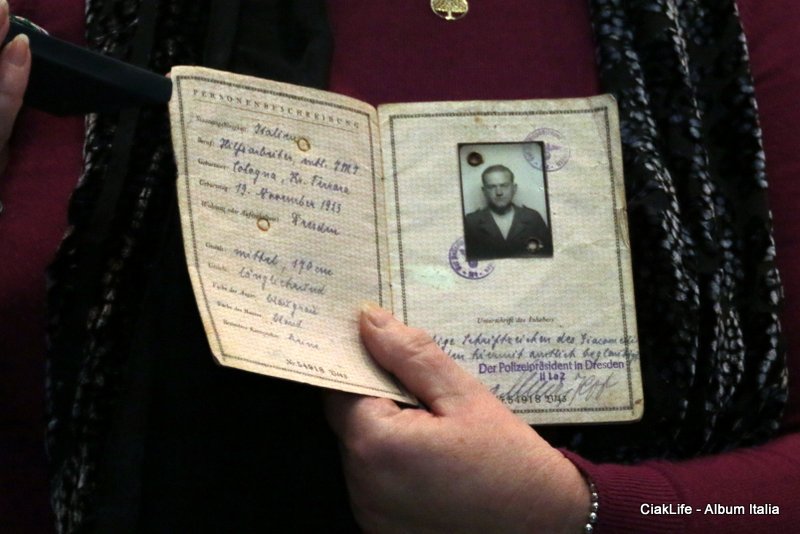 PERSONENBESCHREIBUNG
Staatsangehörigkeit: Italien
Beruf: Hilfsarbeiter,
Geburtsort: Cologna, Pr. Ferrara
Geburtstag: 19. November 1923
Wohnung oder Aufenthalt: Dresden
Gestalt: mittel, 170 cm
Gesicht: länglichrund
Farbe der Augen: blaugrau
Farbe des Haares: blond
Besondere Kennzeichen: keine
Nr. 54918
Unterschrift des Inhabers
Schriftzeichen des Giacomo
hiermit amtlich beglaubigt
Der Polizeipräsident in Dresden
II 1a2
54918
CiakLife - Album Italia